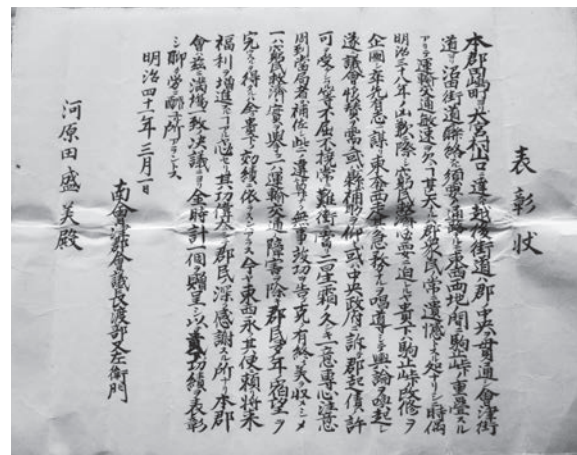 表彰状
本郡田島町ヨリ大宮村山口ニ達スル越後街道ハ郡ノ中央ヲ貫通シ會津街
道ヨリ沼田街道ニ聯絡スル須要ノ通路ナルモ東西両地間ニ駒止峠ノ重疊スル
アリテ運輸交通敏速ヲ欠キ甚大ナル郡衆民常ニ遺憾トスル処ナリシニ時偶
明治三十八年ノ凶歉ニ際シ窮民救済ノ必要ニ迫レルヤ貴下ハ駒止峠改修ヲ
企圖シ率先有志ニ謀リ東奔西走其急務タルヲ唱道セシニ輿論ヲ喚起シ
遂ニ議會ノ協賛ヲ需メ或ハ縣補助ヲ仰キ或ハ中央政府ニ訴ヘ郡起債ノ許
可ヲ受クル等不屈不撓常ニ難衝ニ當リ二星霜ノ久シキ一意専心注意
周到當局者ヲ補佐シ些ノ違算ナク無事竣功ヲ告ケ克ク有終ノ美ヲ収メシメ
一ハ窮民救済ノ實ヲ舉ケ一ハ運輸交通ノ障害ヲ除キ郡民多年ノ宿望ヲ
完フスルヲ得タル全ク貴下ノ効績ニ依ラスンハアラス今ヤ東西永ク其便ニ頼リ将来
福利ヲ増進スヘキヤ必セリ其功偉大ニシテ郡民ノ深ク感謝スル所ナリ本郡
會ハ茲ニ満場一致ノ決議ニヨリ金時計一個ヲ贈呈シ以テ其功績ヲ表彰
シ聊カ労ニ酬ヰル所アラントス
明治四十一年三月一日
南會津郡會議長渡部又左衛門
河原田盛美殿